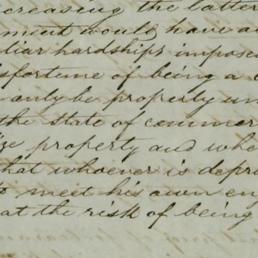 creasing the latter
ment would have a
liar hardships impose
sfortune of being a
only be property un
the state of commer
ze property and whe
hat whoever is depri
to meet his own en
at the risk of being